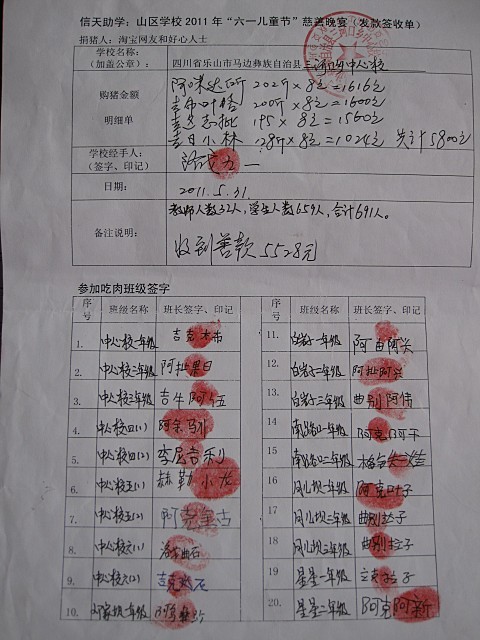 信天助学：山区学校 2011 年“六一儿童节”慈善晚宴（发款签收单）
捐猪人：淘宝网友和好心人士
学校名称：
（加盖公章）：
四川省乐山市马边彝族自治县三河口乡中心校
购猪金额
明细单
阿米达所 202斤×8元=1616元
200斤×8元=1600元
195×8元=1560元
吉日小林 128斤×8元=1024元 共计5800元
学校经手人：
（签字、印记）
日期：
2011.5.31.
备注说明：
教师人数32人，学生人数659人，合计691人。
收到善款5528元
参加吃肉班级签字
序号 班级名称 班长签字、印记 序号 班级名称 班长签字、印记
1. 中心校一年级 吉克木布
11. 白岩子一年级 阿由阿兴
2. 中心校二年级 阿批果日
12. 白岩子二年级 阿批阿兴
3. 中心校三年级 吉牛阿伍
13. 白岩子三年级 曲别阿伟
4. 中心校四(1) 阿余马小
14 一年级 阿克阿千
5. 中心校四(2) 李尼吉利
15 二年级
6. 中心校五(1) 赫勒小龙
16 月儿坝一年级 阿克叶子
7. 中心校五(2) 阿克
17 月儿坝二年级 曲别拉子
8. 中心校六(1)
18 月儿坝三年级 曲别拉子
9. 中心校六(2) 吉克
19 星星一年级
10. 邓家坝一年级
20. 星星二年级 阿克阿新